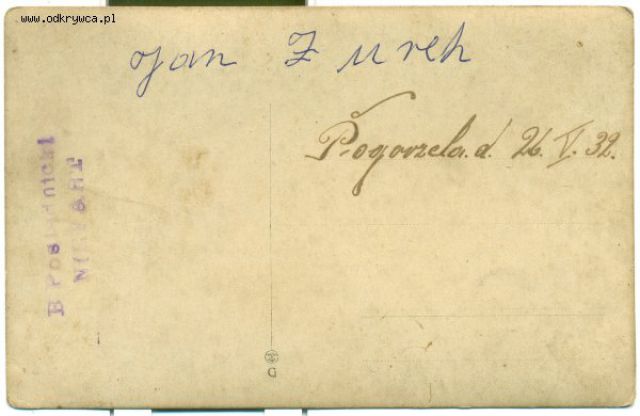 www.odkrywca.pl
Jan Zurek
Pogorzela. d. 26. V. 32.
B